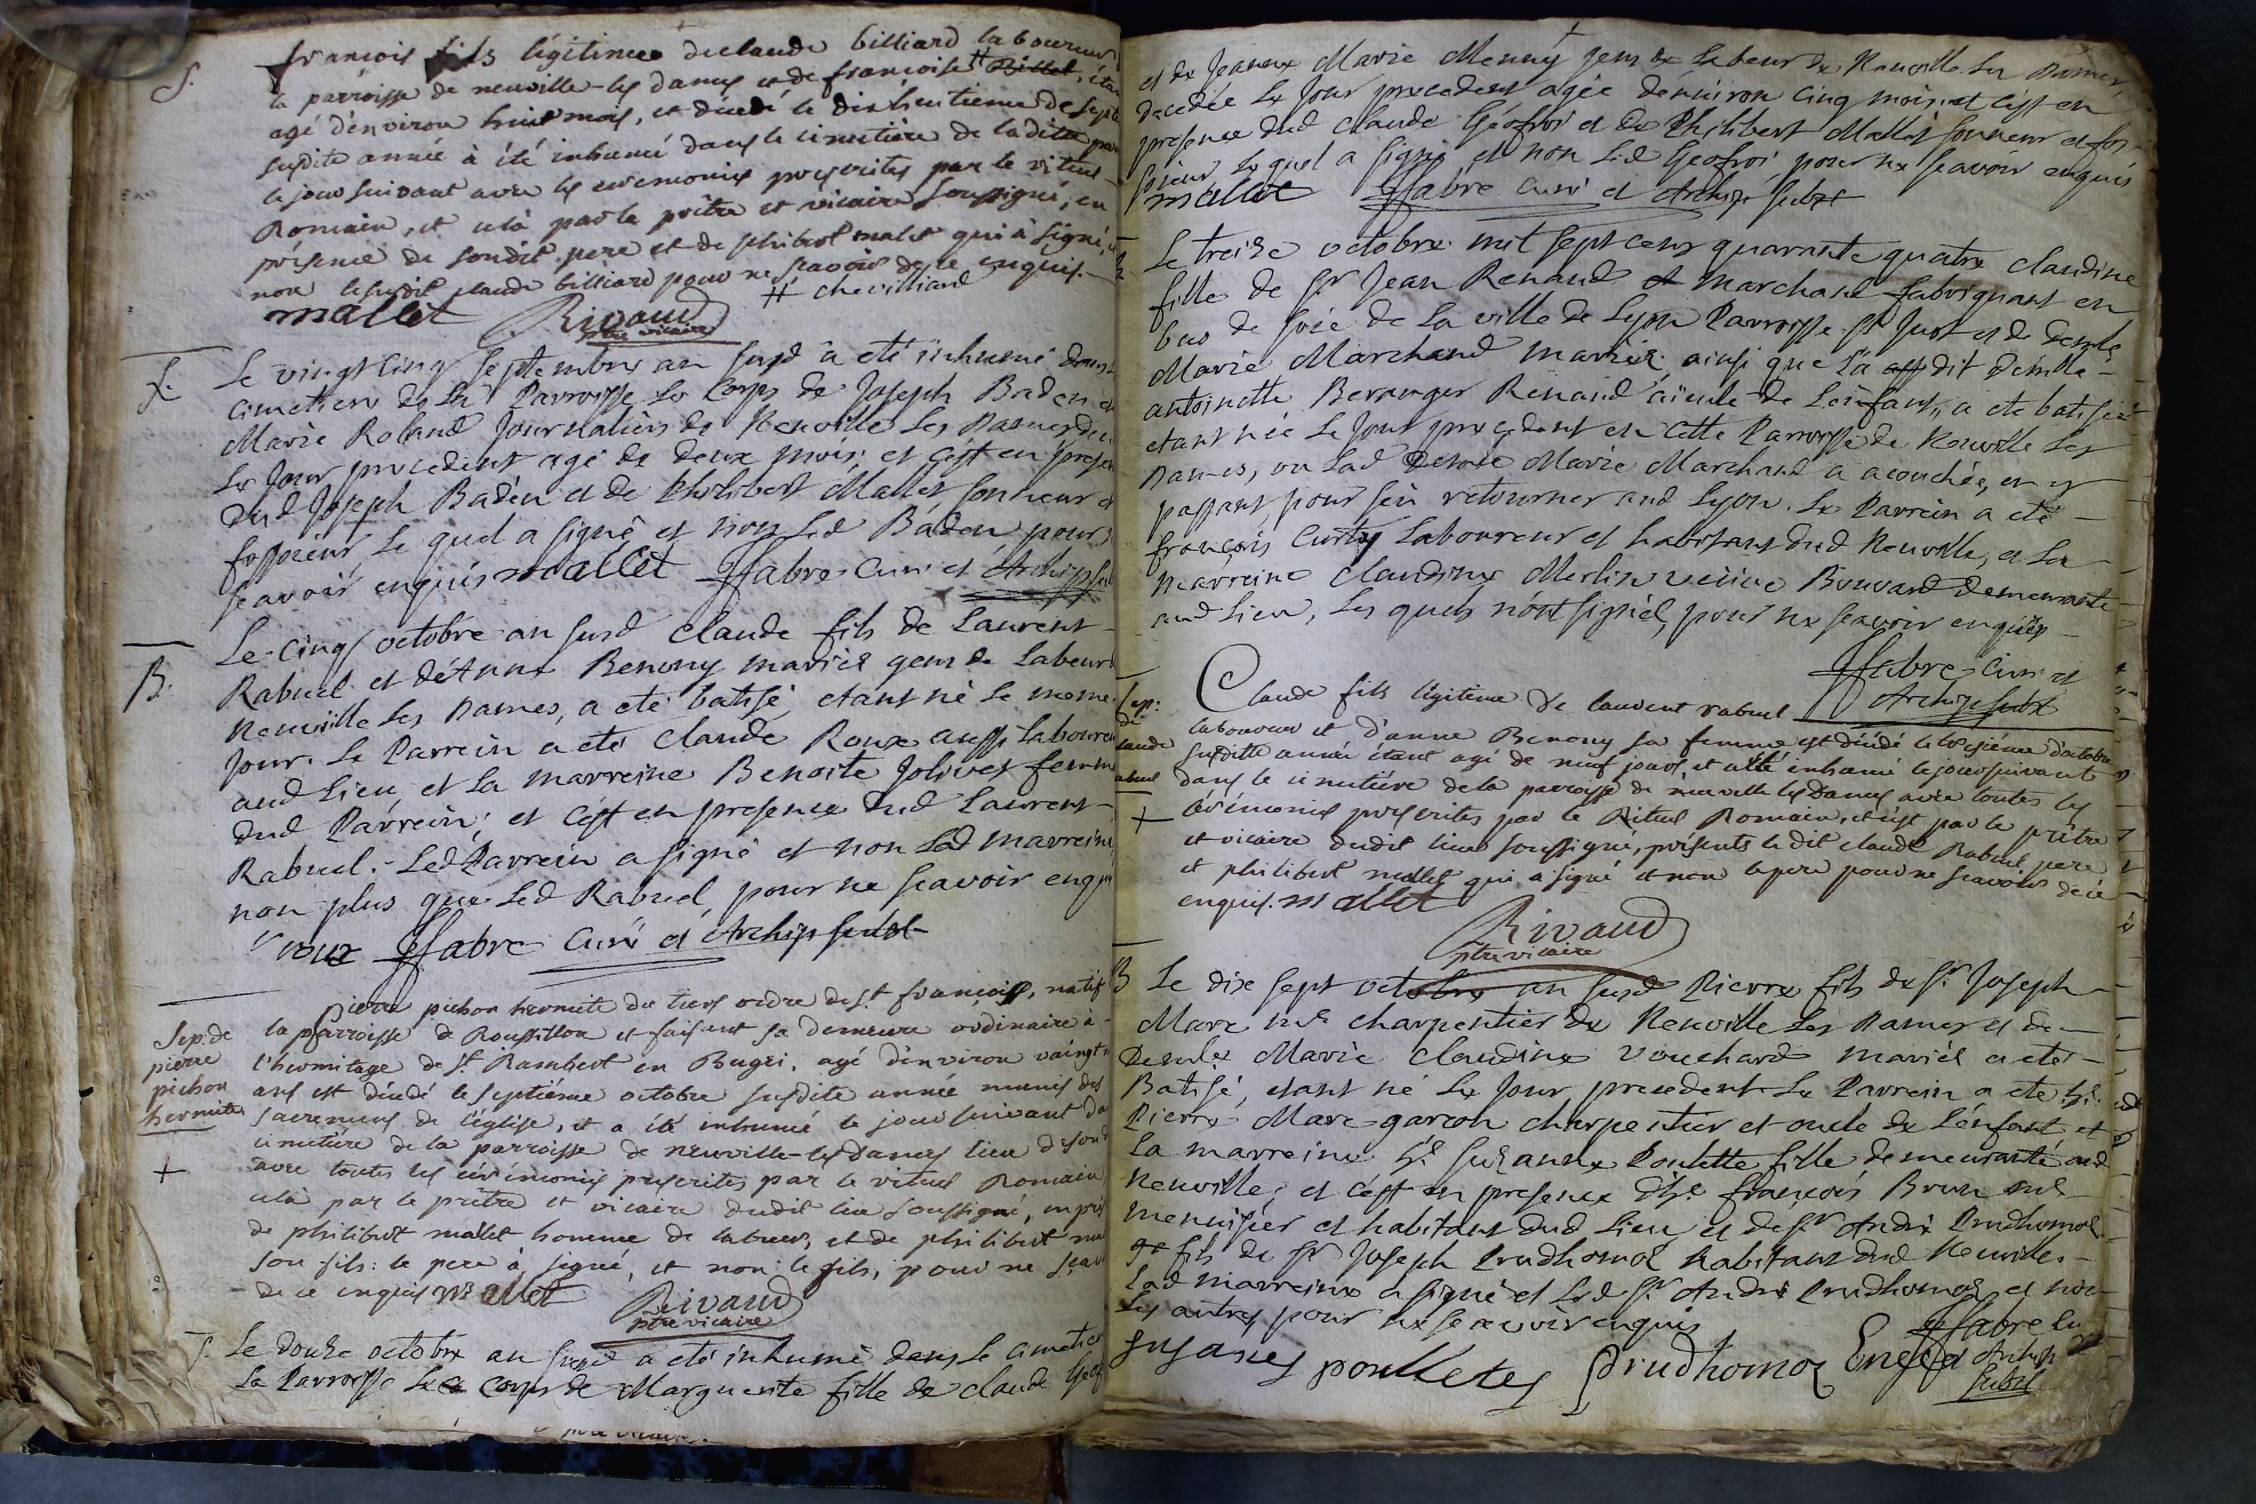 S.
françois fils légitime de claude billiard laboureur
la parroisse de neuville-les dames et de françoise # Billet, étan
agé d'environ huit mois, et décedé le dixhuitieme de septe
susdite année à été inhumé dans le cimetière de la ditte par
le jour suivant avec les ceremonies prescrites par le rituel
Romain, et cela par le prêtre et vicaire soussigné, en
présence de son dit pere et de philibert malet qui à signé, et
non le susdit claude billiard pour ne sçavoir de ce enquis. —
# chevilliard
mallet Rivaud
ptre vicaire
S.
Le vingt cinq septembre an susd a eté inhumé dans le
cimetiere de la Parroisse le corps de Joseph Baden et
Marie Roland Journaliers de Neuville Les Dames dec
Le Jour precedent agé de deux mois; et c'est en presen
dud Joseph Baden et de Philibert Mallet sonneur et
fossoieur, Le quel a signé et non Led Baden pour n
sçavoir enquis mallet Jfabre Curé et Archip sub
B.
Le cinq octobre an susd Claude fils de Laurent
Rabuel et d'Anne Benony mariés gens de Labeur d
Neuville Les Dames, a eté batisé, etant né Le meme
Jour. Le Parrein a eté Claude Roux aussi Laboureu
aud Lieu et la marreine Benoite Jolivet femme
dud Parrein; et c'est en presence dud Laurent
Rabuel. Led Parrein a signé et non Lad marreine
non plus que Led Rabuel pour ne sçavoir enquis
roux Jfabre Curé et Archip subst
Sep: de
pierre
pichon
hermite
+
Pierre pichon hermite du tiers ordre de St françois, natif
la parroisse de Roussillon et faisant sa demeure ordinaire à
l'hermitage de St Rambert en Bugei, agé d'environ vaingt
ans est décédé le septiéme octobre susdite année munis des
sacremens de l'église, et a été inhumé le jour suivant da
cimetière de la parroisse de neuville-les Dames lieu de son d
avec toutes les cérémonies prescrites par le rituel Romain
cela par le prêtre et vicaire dudit lieu soussigné, en prés
de philibert mallet homme de labeur, et de philibert ma
son fils: le pere à signé, et non le fils, pour ne sçav
de ce enquis mallet Rivaud
ptre vicaire
S.
Le douze octobre an susd a eté inhumé dans le cimetier
La Parroisse Le corps de Marguerite fille de claude Geof
et de Jeanne Marie Menny gens de Labeur de Neuville Les Dames,
decedée Le Jour precedent agée d'environ cinq mois; et c'est en
presence dud Claude Géofroi et de Philibert Mallet sonneur et fos
soieur Lequel a signé et non Led Geofroi pour ne sçavoir enquis
mallet Jfabre Curé et Archip subst
Le treize octobre mil sept cens quarante quatre Claudine
fille de Sr Jean Renaud Marchand fabriquant en
bas de soie de la ville de Lyon Parroisse St Just et de demlle
Marie Marchand mariés, ainsi que l'a dit demlle
antoinette Beranger Renaud aïeule de L'enfant, a eté batisée
etant née Le Jour precedent en cette Parroisse de Neuville Les
Dames, ou Lad demlle Marie Marchand a acouchée, en y
passant pour s'en retourner aud Lyon. Le Parrein a eté
françois Curty Laboureur et habitant dud Neuville, et la
marreine Claudine Merlin veuve Bouvard demeurante
aud Lieu, Les quels n'ont signés, pour ne sçavoir enquis
Jfabre Curé et
Archip subst
Sep:
de
claude
rabuel
+
Claude fils légitime de laurent rabuel
laboureur et d'anne Benony sa femme est décédé le treziéme d'octobre
susditte année étant agé de neuf jours, et a été inhumé le jour suivant
dans le cimetière de la parroisse de neuville les Dames avec toutes les
cérémonies prescrites par le Rituel Romain, et c'est par le prêtre
et vicaire dudit lieu soussigné, présents le dit claude Rabuel pere
et philibert mallet qui à signé et non le pere pour ne sçavoir de ce
enquis. mallet
Rivaud
ptre vicaire
B
Le dix sept octobre an susd Pierre fils de Sr Joseph
Marc me charpentier de Neuville Les Dames et de
Demlle Marie Claudine Vouchard mariés a eté
Batisé, etant né Le Jour precedent Le Parrein a eté
Pierre Marc garcon charpentier et oncle de L'enfant et
La marreine Suzanne Poulette fille demeurante aud
Neuville; et c'est en presence d'he françois Brun me
menuisier et habitant dud Lieu et de Sr André Prudhomoz
fils de Sr Joseph Prudhomoz habitant dud Neuville.
Lad marreine a signé et Led Sr André Prudhomoz et non
Les autres pour ne sçavoir enquis
Jfabre Cu
susanes poulletes Prudhomoz et Archip
Subst